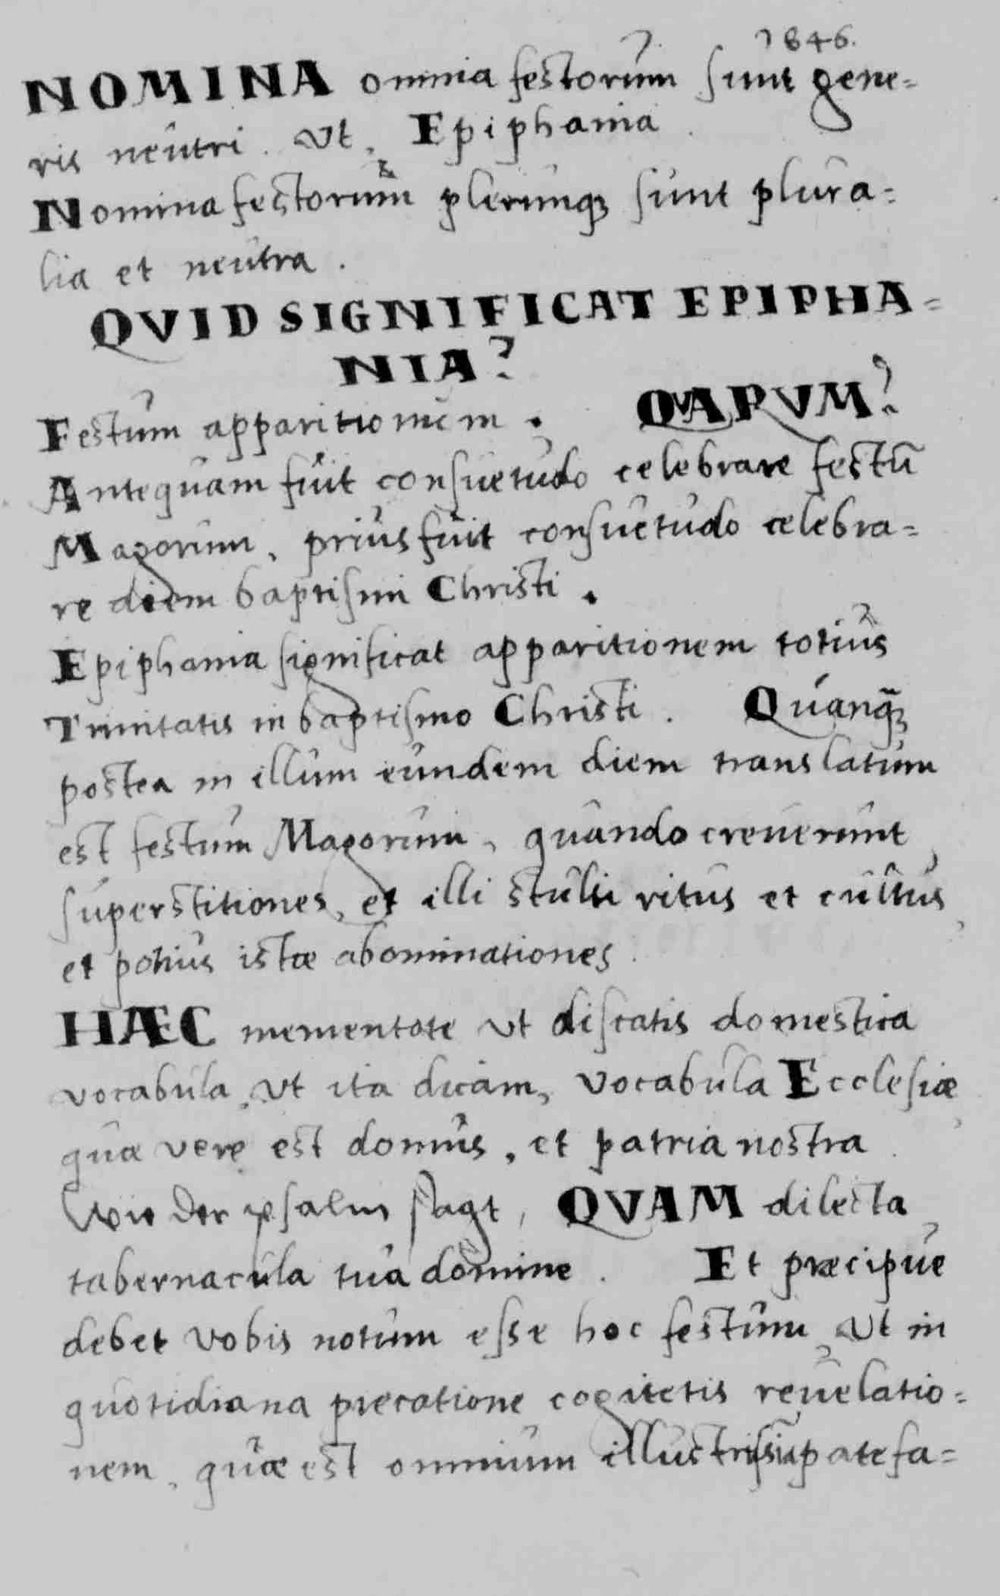 1846.
NOMINA omnia festorum sunt gene=
ris neutri. Ut, Epiphania.
Nomina festorum plerunq; sunt plura=
lia et neutra.
QVID SIGNIFICAT EPIPHA=
NIA?
Festum apparitionum. QVARVM?
Antequam fuit consuetudo celebrare festū
Magorum, prius fuit consuetudo celebra=
re diem baptismi Christi.
Epiphania significat apparitionem totius
Trinitatis in baptismo Christi. Quanq̃;
postea in illum eundem diem translatum
est festum Magorum, quando creverunt
superstitiones, et illi stulti ritus et cultus,
et potius istæ abominationes.
HÆC mementote ut discatis domestica
vocabula, ut ita dicam, vocabula Ecclesiæ,
quæ vere est domus, et patria nostra.
Wie der psalm sagt, QVAM dilecta
tabernacula tua domine. Et præcipue
debet vobis notum esse hoc festum, ut in
quotidiana precatione cogitetis revelatio=
nem, quæ est omnium patefa=